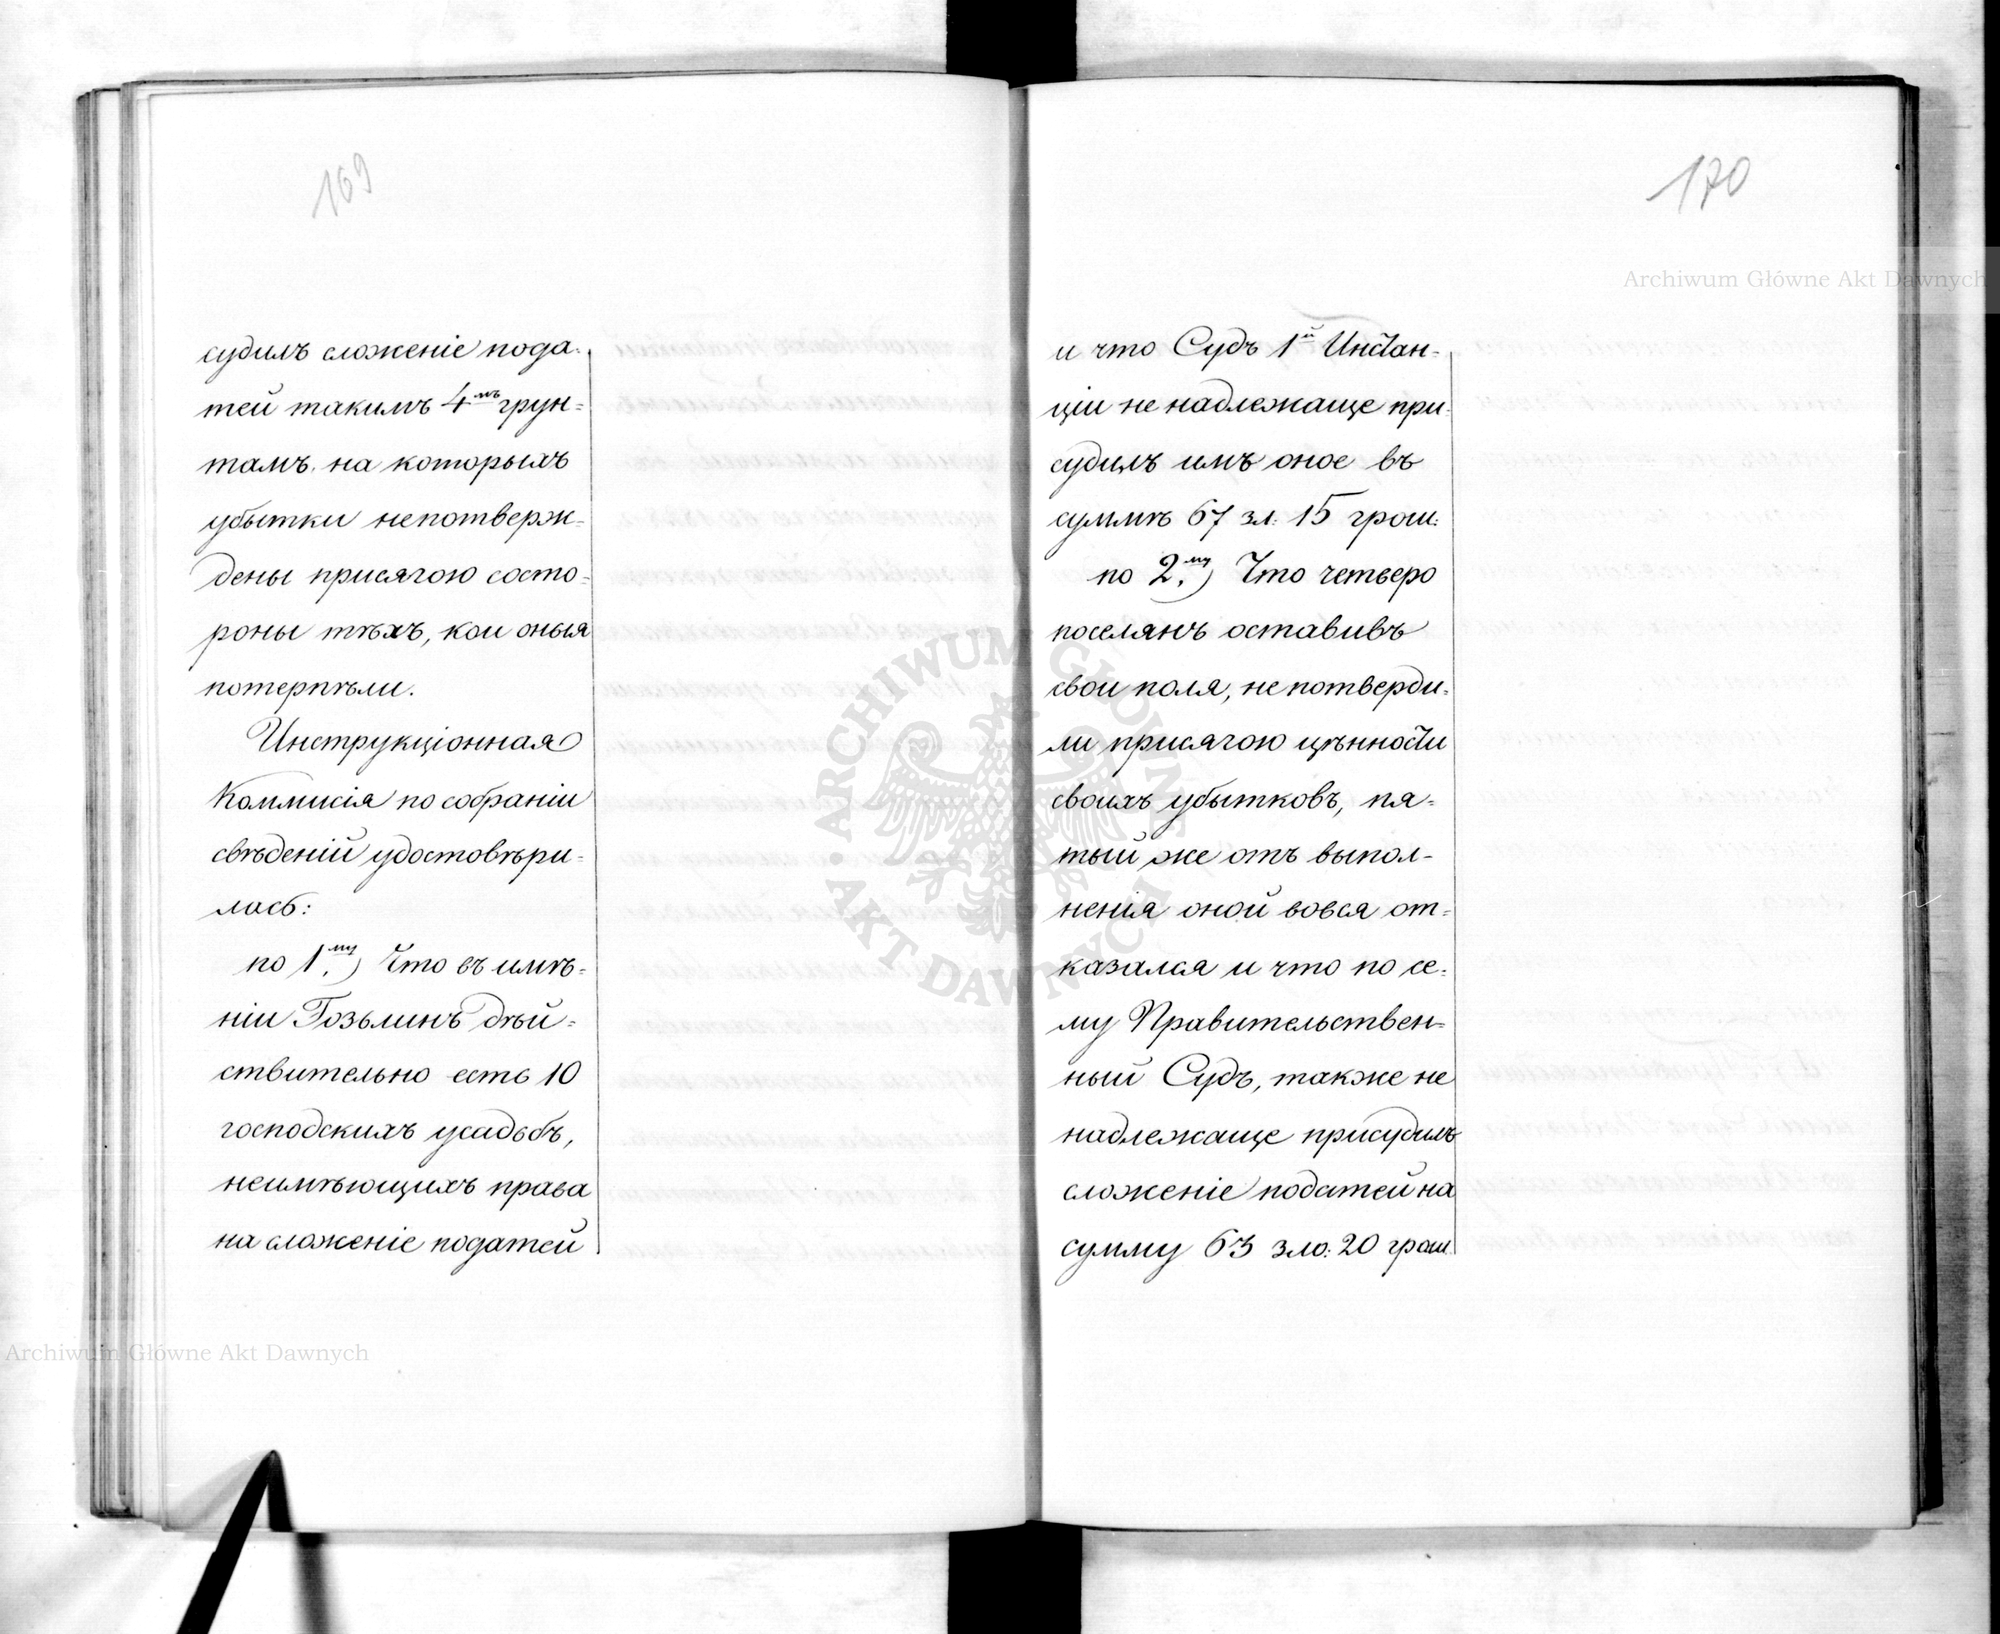 169
судилъ сложеніе пода-
тей такимъ 4мъ грун-
тамъ на которыхъ
убытки непотверж-
дены присягою состо-
роны тѣхъ, кои оныя
потерпѣли.
Инструкціонная
Коммисія по собраніи
свѣденій удостовѣри-
лась:
по 1.му) Что въ имѣ-
ніи Гозьлинъ дѣй-
ствительно есть 10
господскихъ усадьбъ,
неимѣющихъ права
на сложеніе податей
170
и что Судъ 1й Инстан-
ціи не надлежаще при-
судилъ имъ оное въ
суммѣ 67 зл: 15 грош:
по 2.му) Что четверо
поселянъ оставивъ
свои поля, не потверди-
ли присягою цѣнности
своихъ убытковъ, пя-
тый же отъ выпол-
ненія оной вовся от-
казался и что по се-
му Правительствен-
ный Судъ, также не
надлежаще присудилъ
сложеніе податей на
сумму 63 зло: 20 грош.
Archiwum Główne Akt Dawnych
Archiwum Główne Akt Dawnych
ARCHIWUM GŁÓWNE AKT DAWNYCH